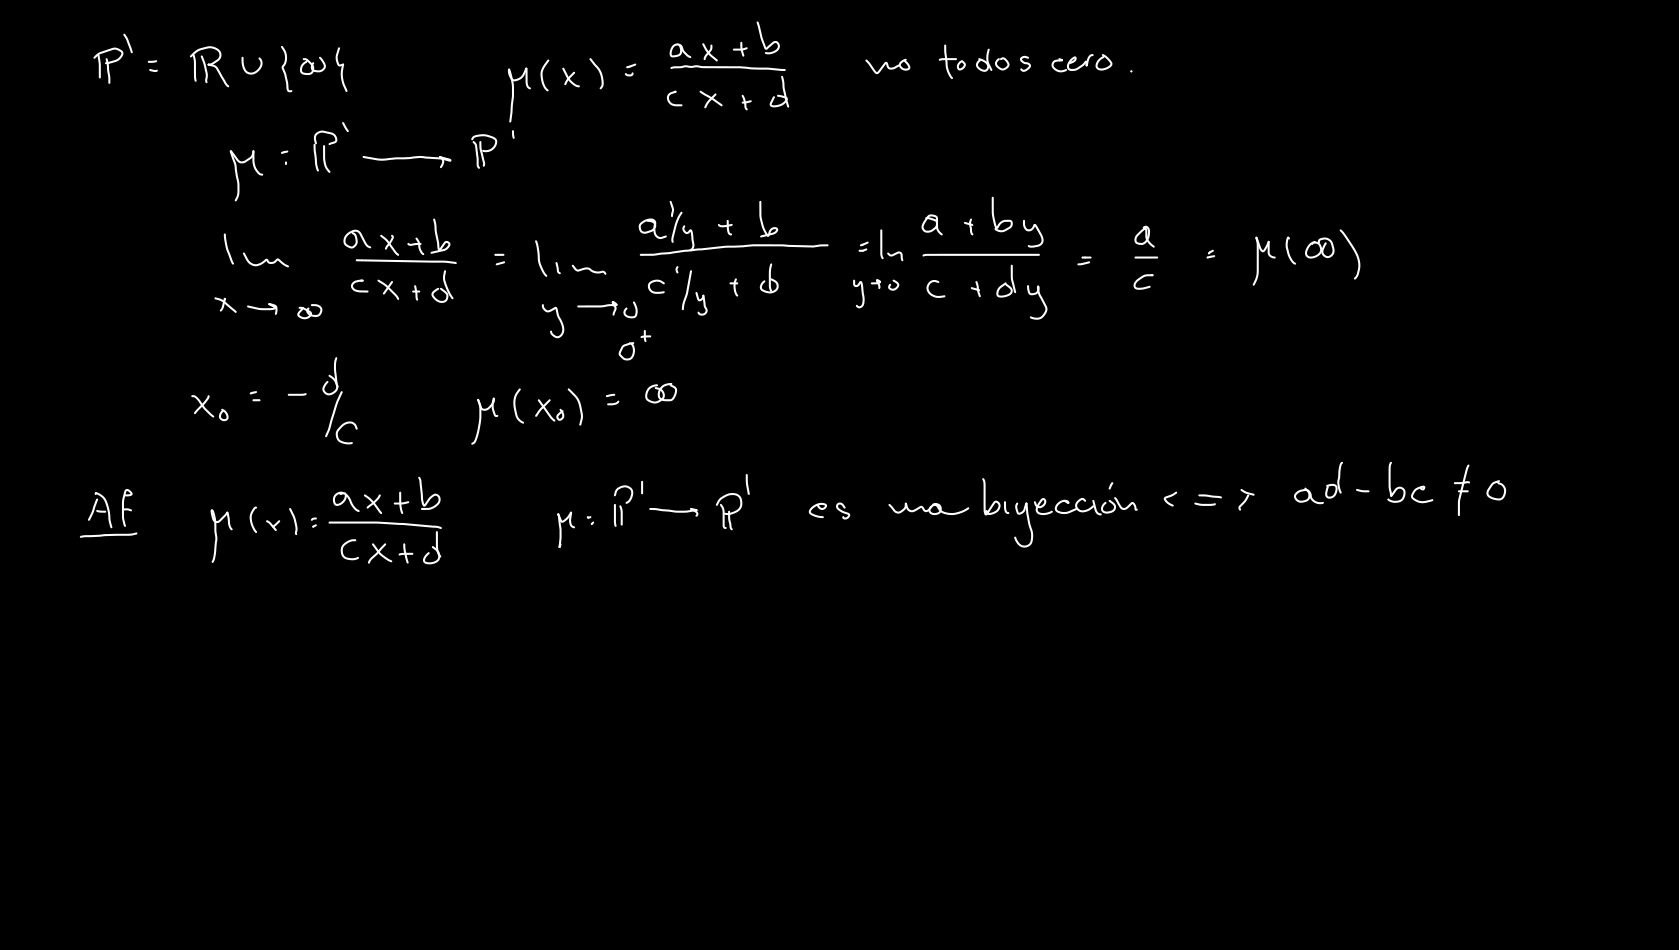 ℙ¹ = ℝ ∪ {∞{ μ(x) = (ax+b)/(cx+d) no todos cero.
μ : ℙ¹ ⟶ ℙ¹
lim x→∞ (ax+b)/(cx+d) = lim y→0 0⁺ (a 1/y + b)/(c 1/y + d) = lm y→0 (a + by)/(c + dy) = a/c = μ(∞)
x₀ = -d/c μ(x₀) = ∞
Af μ(x) = (ax+b)/(cx+d) μ : ℙ¹ ⟶ ℙ¹ es una biyección <=> ad - bc ≠ 0